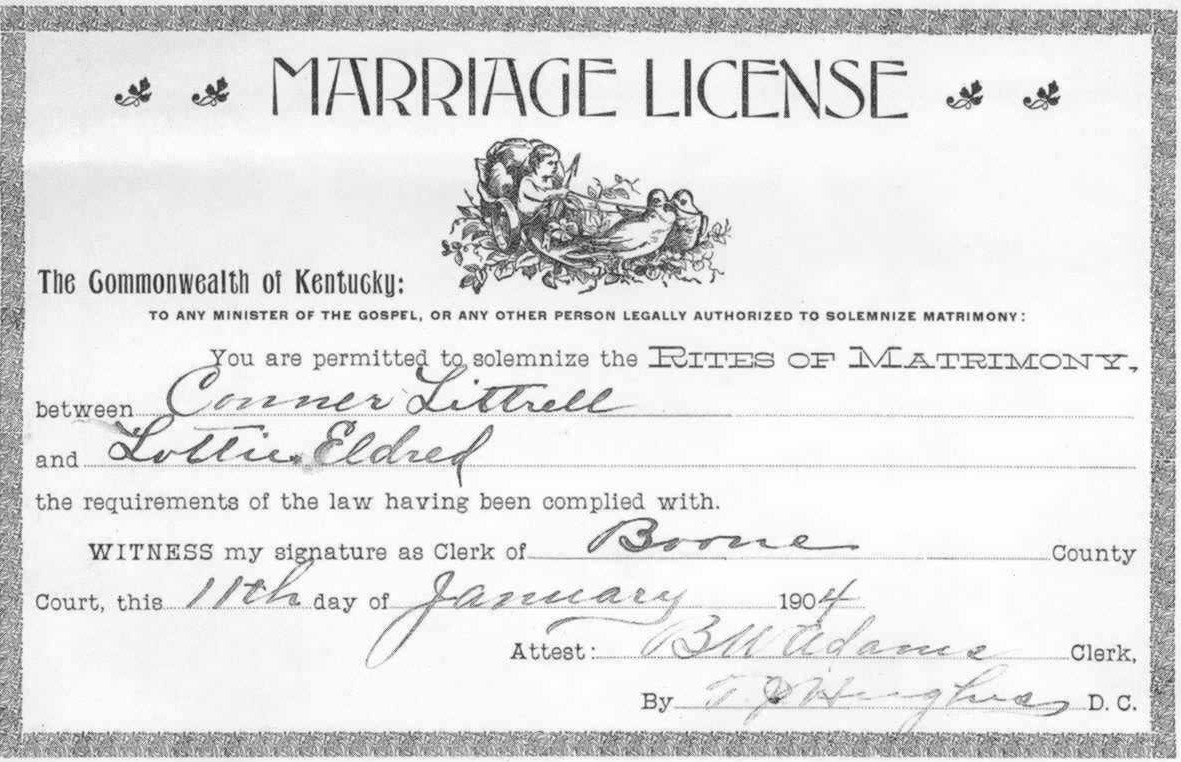 MARRIAGE LICENSE
The Commonwealth of Kentucky:
TO ANY MINISTER OF THE GOSPEL, OR ANY OTHER PERSON LEGALLY AUTHORIZED TO SOLEMNIZE MATRIMONY:
You are permitted to solemnize the RITES OF MATRIMONY,
between Conner Littrell
and Lottie Eldred
the requirements of the law having been complied with.
WITNESS my signature as Clerk of Boone County
Court, this 11th day of January 1904
Attest: B W Adams Clerk,
By T. J Hughes D. C.